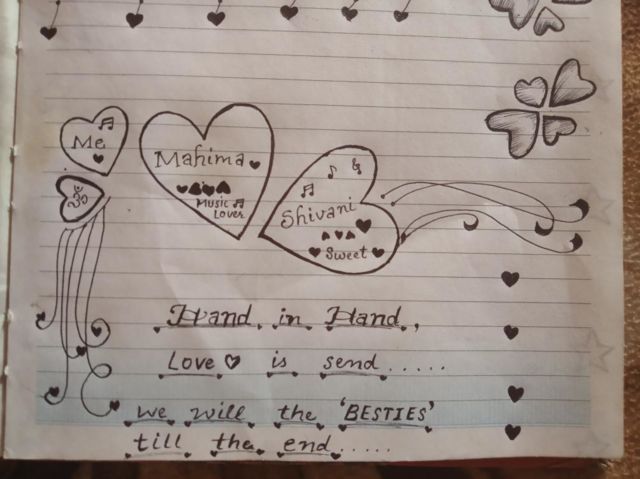 Me
ॐ
Mahima
Music
Lover
Shivani
Sweet
Hand in Hand,
Love is send......
we will the 'BESTIES'
till the end.....